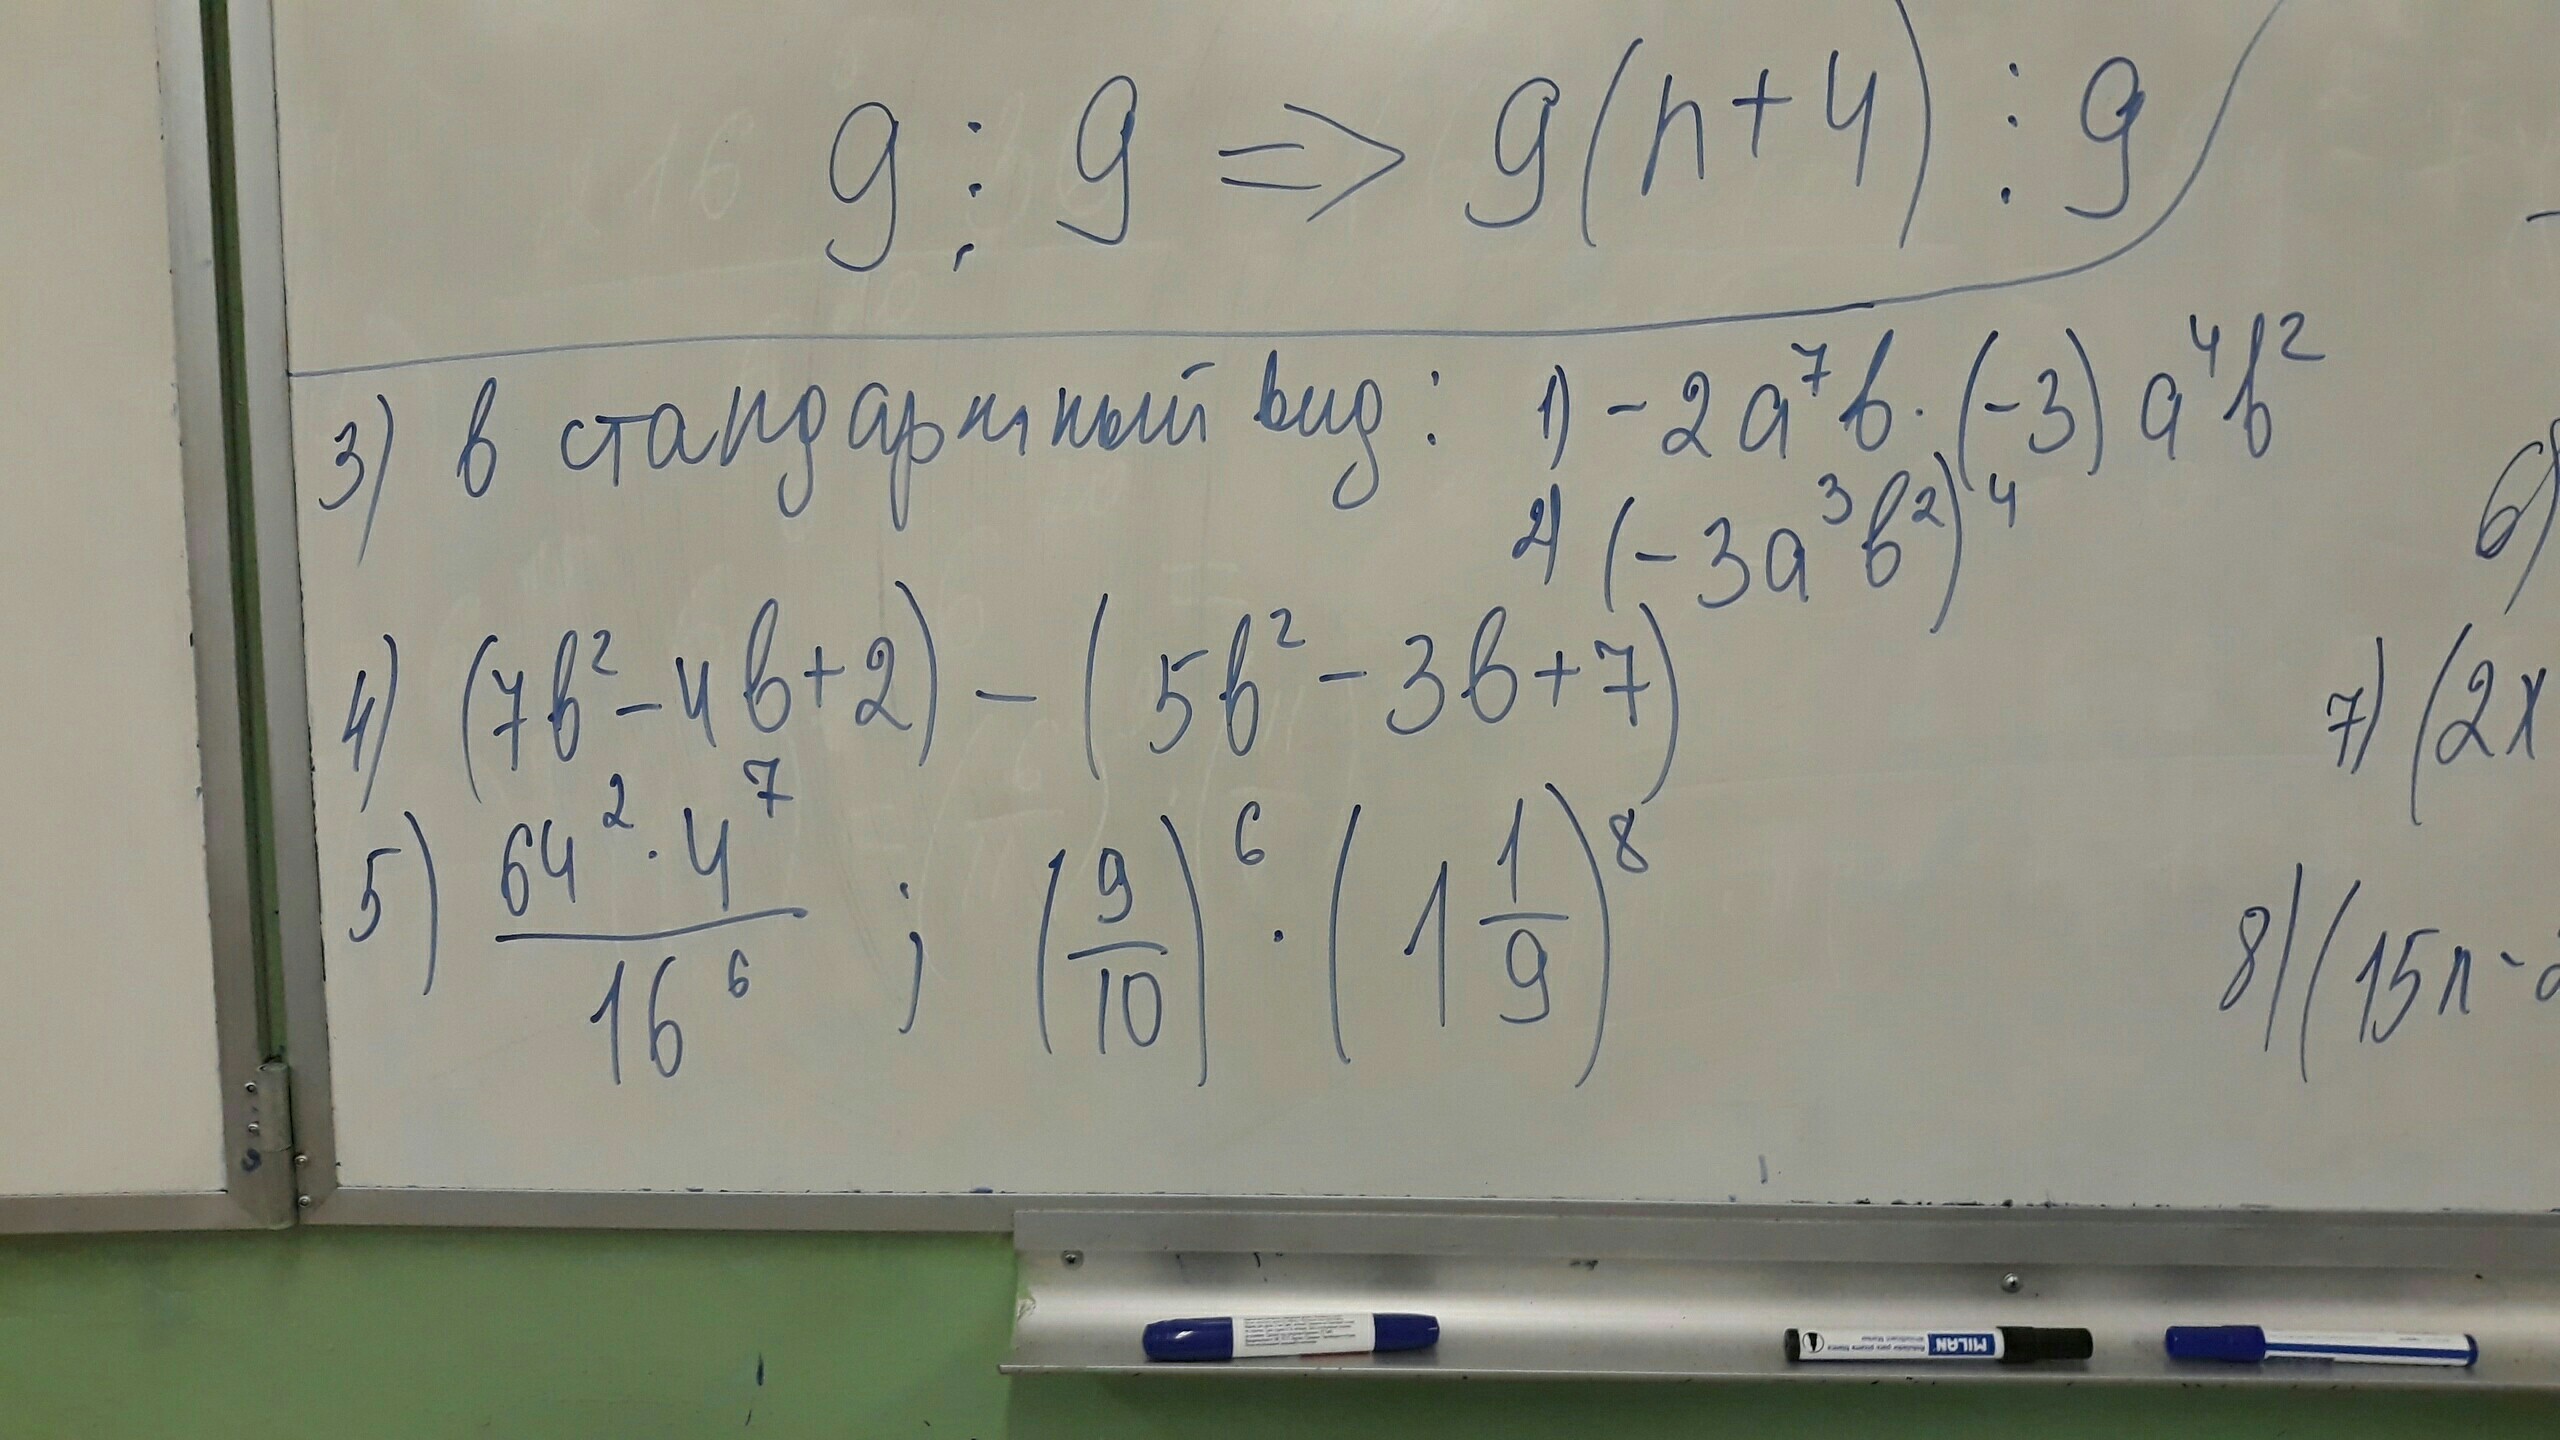 9 ⋮ 9 ⇒ 9(n+4) ⋮ 9
3) в стандартный вид: 1) -2a⁷b·(-3)a⁴b²
2) (-3a³b²)⁴
6)
4) (7b²-4b+2) - (5b²-3b+7)
7) (2x
5) 64²·4⁷/16⁶ ; (9/10)⁶ · (1 1/9)⁸
8) (15n-2
MILAN